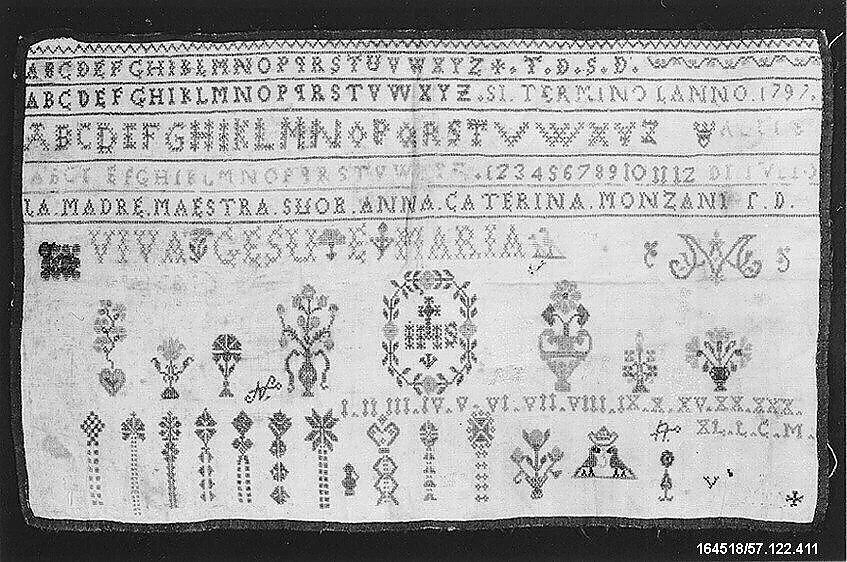 ABCDEFGHIKLMNOPQRSTUVWXYZ. T. D. S. D.
ABCDEFGHIKLMNOPQRSTVWXYZ. SI. TERMINO LANNO. 1797.
ABCDEFGHIKLMNOPQRSTVWXYZ
ABCDEFGHIKLMNOPQRSTVW .123456789101112
LA. MADRE. MAESTRA. SUOR. ANNA. CATERINA. MONZANI
VIVA GESU E MARIA
IHS
I. II. III. IV. V. VI. VII. VIII. IX. X. XV. XX. XXX.
XL. L. C. M.
164518/57.122.411